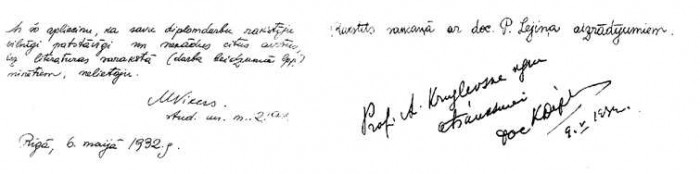 Ar šo apliecinu, ka savu diplomdarbu rakstīju
pilnīgi patstāvīgi un nekādus citus avotus,
bez literatūras sarakstā (darba beidzamā lpp.)
minētiem, nelietoju.
MVikers.
Stud. un. n.
Rīgā, 6. maijā 1932. g.
Rakstīts saskaņā ar doc. P. Lejiņa aizrādījumiem.
Prof. A. Kruglevska kgm
atsauksmei
doc
9. V 1932.